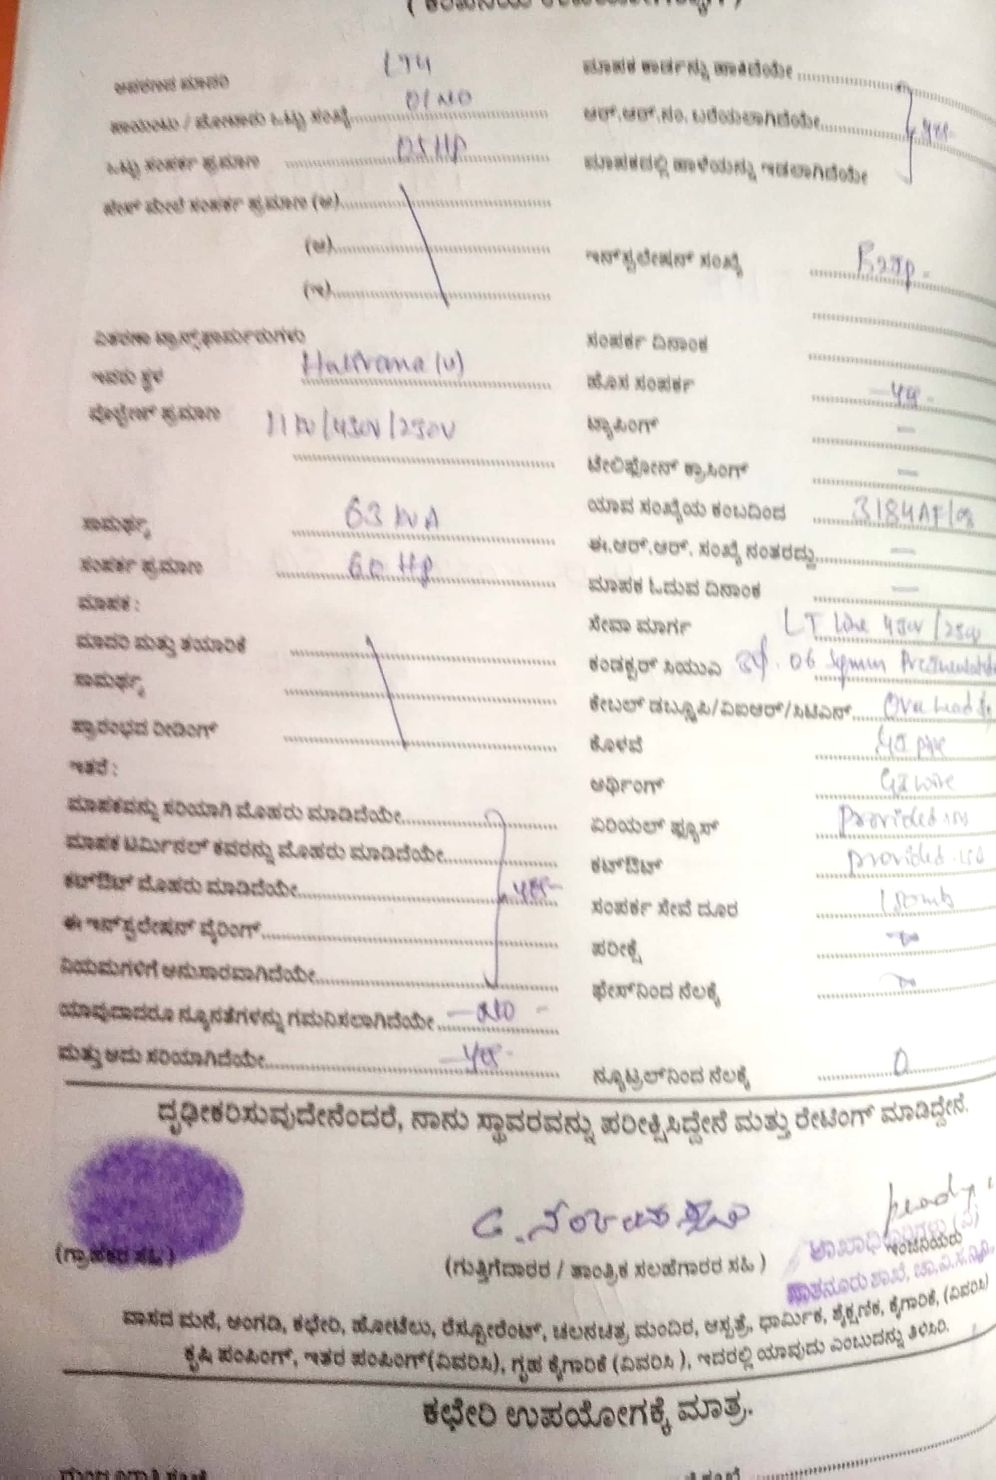 ಆವರಣದ ಮಾದರಿ LT4
ಪಾಯಿಂಟು / ಮೋಟಾರು ಒಟ್ಟು ಸಂಖ್ಯೆ 01 NO
ಒಟ್ಟು ಸಂಪರ್ಕ ಪ್ರಮಾಣ 05 HP
ಫೇಸ್ ಮೇಲೆ ಸಂಪರ್ಕ ಪ್ರಮಾಣ (ಅ)
(ಆ)
(ಇ)
ವಿತರಣಾ ಟ್ರಾನ್ಸ್‌ಫಾರ್ಮರುಗಳು
ಇವರು ಸ್ಥಳ (v)
ವೋಲ್ಟೇಜ್ ಪ್ರಮಾಣ 11 kv/430V/250V
ಸಾಮರ್ಥ್ಯ 63 kVA
ಸಂಪರ್ಕ ಪ್ರಮಾಣ 60 HP
ಮಾಪಕ :
ಮಾದರಿ ಮತ್ತು ತಯಾರಿಕೆ
ಸಾಮರ್ಥ್ಯ
ಪ್ರಾರಂಭದ ರೀಡಿಂಗ್
ಇತರೆ :
ಮಾಪಕವನ್ನು ಸರಿಯಾಗಿ ಮೊಹರು ಮಾಡಿದೆಯೇ
ಮಾಪಕ ಟರ್ಮಿನಲ್ ಕವರನ್ನು ಮೊಹರು ಮಾಡಿದೆಯೇ
ಕಟ್‌ಔಟ್ ಮೊಹರು ಮಾಡಿದೆಯೇ yes
ಈ ಇನ್‌ಸ್ಟಲೇಷನ್ ವೈರಿಂಗ್
ನಿಯಮಗಳಿಗೆ ಅನುಸಾರವಾಗಿದೆಯೇ
ಯಾವುದಾದರೂ ನ್ಯೂನತೆಗಳನ್ನು ಗಮನಿಸಲಾಗಿದೆಯೇ - NO -
ಮತ್ತು ಅದು ಸರಿಯಾಗಿದೆಯೇ - yes -
ಮಾಪಕ ಕಾರ್ಡನ್ನು ಹಾಕಿದೆಯೇ
ಆರ್.ಆರ್.ನಂ. ಬರೆಯಲಾಗಿದೆಯೇ yes
ಮಾಪಕದಲ್ಲಿ ಹಾಳೆಯನ್ನು ಇಡಲಾಗಿದೆಯೇ
ಇನ್‌ಸ್ಟಲೇಷನ್ ಸಂಖ್ಯೆ
ಸಂಪರ್ಕ ದಿನಾಂಕ
ಹೊಸ ಸಂಪರ್ಕ - yes -
ಟ್ಯಾಪಿಂಗ್ -
ಟೆಲಿಫೋನ್ ಕ್ರಾಸಿಂಗ್ -
ಯಾವ ಸಂಖ್ಯೆಯ ಕಂಬದಿಂದ
ಈ.ಆರ್.ಆರ್. ಸಂಖ್ಯೆ ನಂತರದ್ದು -
ಮಾಪಕ ಓದುವ ದಿನಾಂಕ -
ಸೇವಾ ಮಾರ್ಗ LT line
ಕಂಡಕ್ಟರ್ ಸಿಯುಎ 06 sqmm
ಕೇಬಲ್ ಡಬ್ಲ್ಯೂಪಿ/ವಿಐಆರ್/ಸಿಟಿಎಸ್ Over head
ಕೊಳವೆ GI pipe
ಅರ್ಥಿಂಗ್ GI wire
ಏರಿಯಲ್ ಫ್ಯೂಸ್ Provided
ಕಟ್‌ಔಟ್ provided
ಸಂಪರ್ಕ ಸೇವೆ ದೂರ
ಪರೀಕ್ಷೆ
ಫೇಸ್‌ನಿಂದ ನೆಲಕ್ಕೆ
ನ್ಯೂಟ್ರಲ್‌ನಿಂದ ನೆಲಕ್ಕೆ 0
ದೃಢೀಕರಿಸುವುದೇನೆಂದರೆ, ನಾನು ಸ್ಥಾವರವನ್ನು ಪರೀಕ್ಷಿಸಿದ್ದೇನೆ ಮತ್ತು ರೇಟಿಂಗ್ ಮಾಡಿದ್ದೇನೆ.
(ಗ್ರಾಹಕರ ಸಹಿ)
(ಗುತ್ತಿಗೆದಾರರ / ತಾಂತ್ರಿಕ ಸಲಹೆಗಾರರ ಸಹಿ)
ವಾಸದ ಮನೆ, ಅಂಗಡಿ, ಕಛೇರಿ, ಹೋಟೆಲು, ರೆಸ್ಟೋರೆಂಟ್, ಚಲನಚಿತ್ರ ಮಂದಿರ, ಆಸ್ಪತ್ರೆ, ಧಾರ್ಮಿಕ, ಶೈಕ್ಷಣಿಕ, ಕೈಗಾರಿಕೆ, (ವಿವರಿಸಿ)
ಕೃಷಿ ಪಂಪಿಂಗ್, ಇತರ ಪಂಪಿಂಗ್(ವಿವರಿಸಿ), ಗೃಹ ಕೈಗಾರಿಕೆ (ವಿವರಿಸಿ), ಇದರಲ್ಲಿ ಯಾವುದು ಎಂಬುದನ್ನು ತಿಳಿಸಿರಿ.
ಕಛೇರಿ ಉಪಯೋಗಕ್ಕೆ ಮಾತ್ರ.